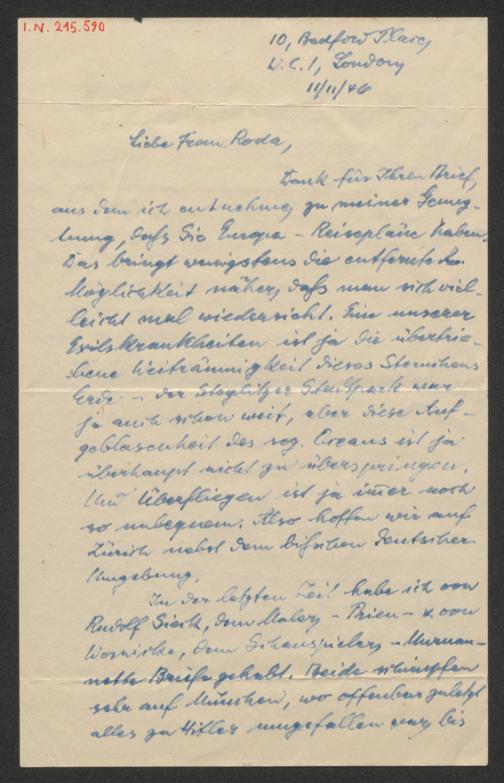 I.N. 215.590
10, Bedford Place,
W.C.1, London
11/11/46
Liebe Frau Roda,
Dank für Ihren Brief,
aus dem ich entnehme, zu meiner Genug-
tuung, daß Sie Europa - Reisepläne haben.
Das bringt wenigstens die entfernte
Möglichkeit näher, daß man sich viel-
leicht mal wiedersieht. Eine unserer
Exilskrankheiten ist ja die übertrie-
bene Weiträumigkeit dieses Sternchens
Erde - der Steglitzer Stadtpark war
ja auch schon weit, aber diese Auf-
geblasenheit des sog. Oceans ist ja
überhaupt nicht zu überspringen.
Und Überfliegen ist ja immer noch
so unbequem. Also hoffen wir auf
Zürich nebst dem bißchen deutscher
Umgebung.
In der letzten Zeit habe ich von
Rudolf Sieck, dem Maler, - Prien - & von
dem Schauspieler, - Murnau -
nette Briefe gehabt. Beide schimpfen
sehr auf München, wo offenbar zuletzt
alles zu Hitler umgefallen war, bis